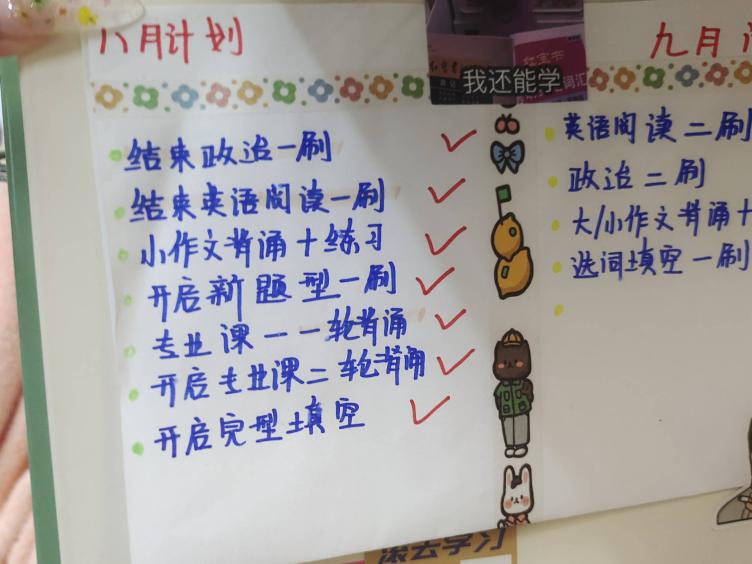 八月计划
结束政治一刷
结束英语阅读一刷
小作文背诵十练习
开启新题型一刷
专业课一一轮背诵
开启专业课二轮背诵
开启完型填空
我还能学
红宝书
词汇
九月
英语阅读二刷
政治二刷
大/小作文背诵十
选词填空一刷
滚去学习